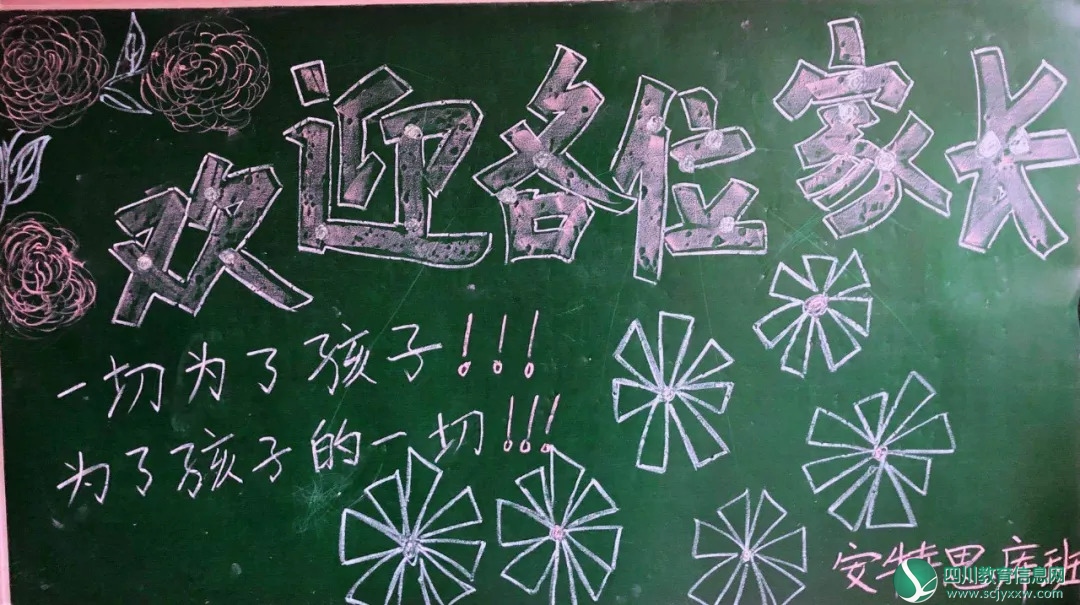 欢迎各位家长
一切为了孩子!!!
为了孩子的一切!!!
安特思库班
四川教育信息网
www.scjyxxw.com